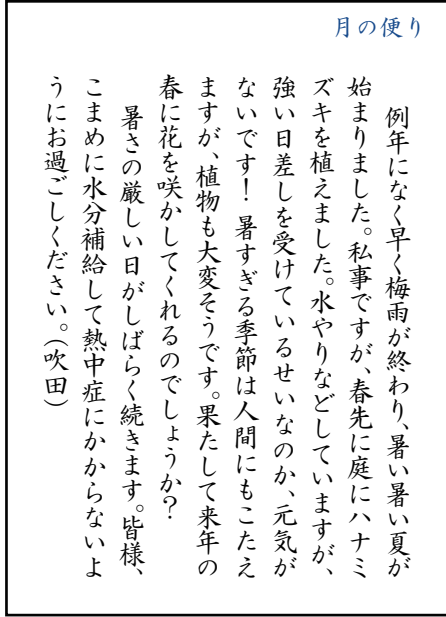 月の便り
例年になく早く梅雨が終わり、暑い暑い夏が
始まりました。私事ですが、春先に庭にハナミ
ズキを植えました。水やりなどしていますが、
強い日差しを受けているせいなのか、元気が
ないです！暑すぎる季節は人間にもこたえ
ますが、植物も大変そうです。果たして来年の
春に花を咲かしてくれるのでしょうか？
暑さの厳しい日がしばらく続きます。皆様、
こまめに水分補給して熱中症にかからないよ
うにお過ごしください。（吹田）